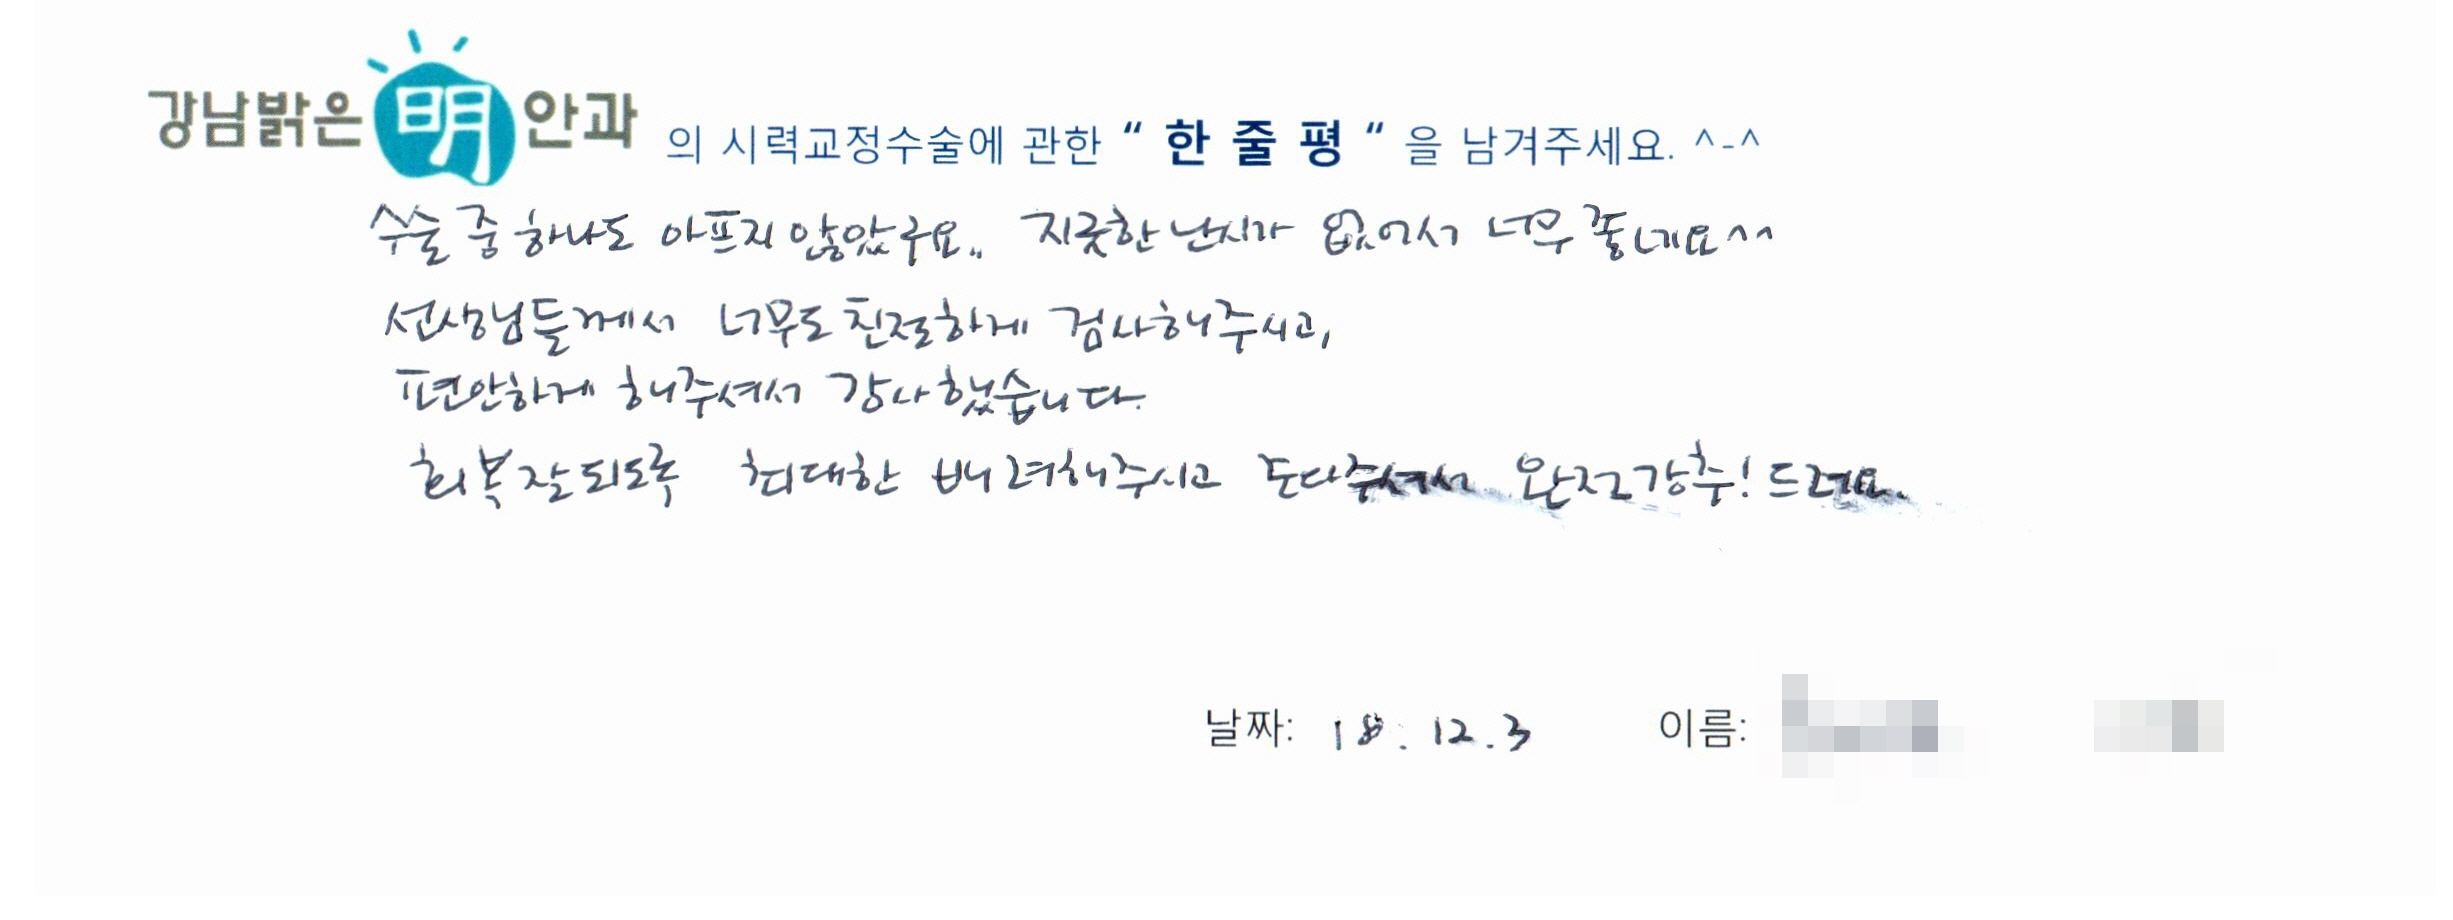 강남밝은明안과 의 시력교정수술에 관한 “ 한 줄 평 “ 을 남겨주세요. ^-^
수술 중 하나도 아프지 않았구요.. 지긋한 난시가 없어서 너무 좋네요^^
선생님들께서 너무도 친절하게 검사해주시고,
편안하게 해주셔서 감사했습니다.
회복 잘되도록 최대한 배려해주시고 도와주셔서 완전강추! 드려요.
날짜: 18. 12. 3 이름: